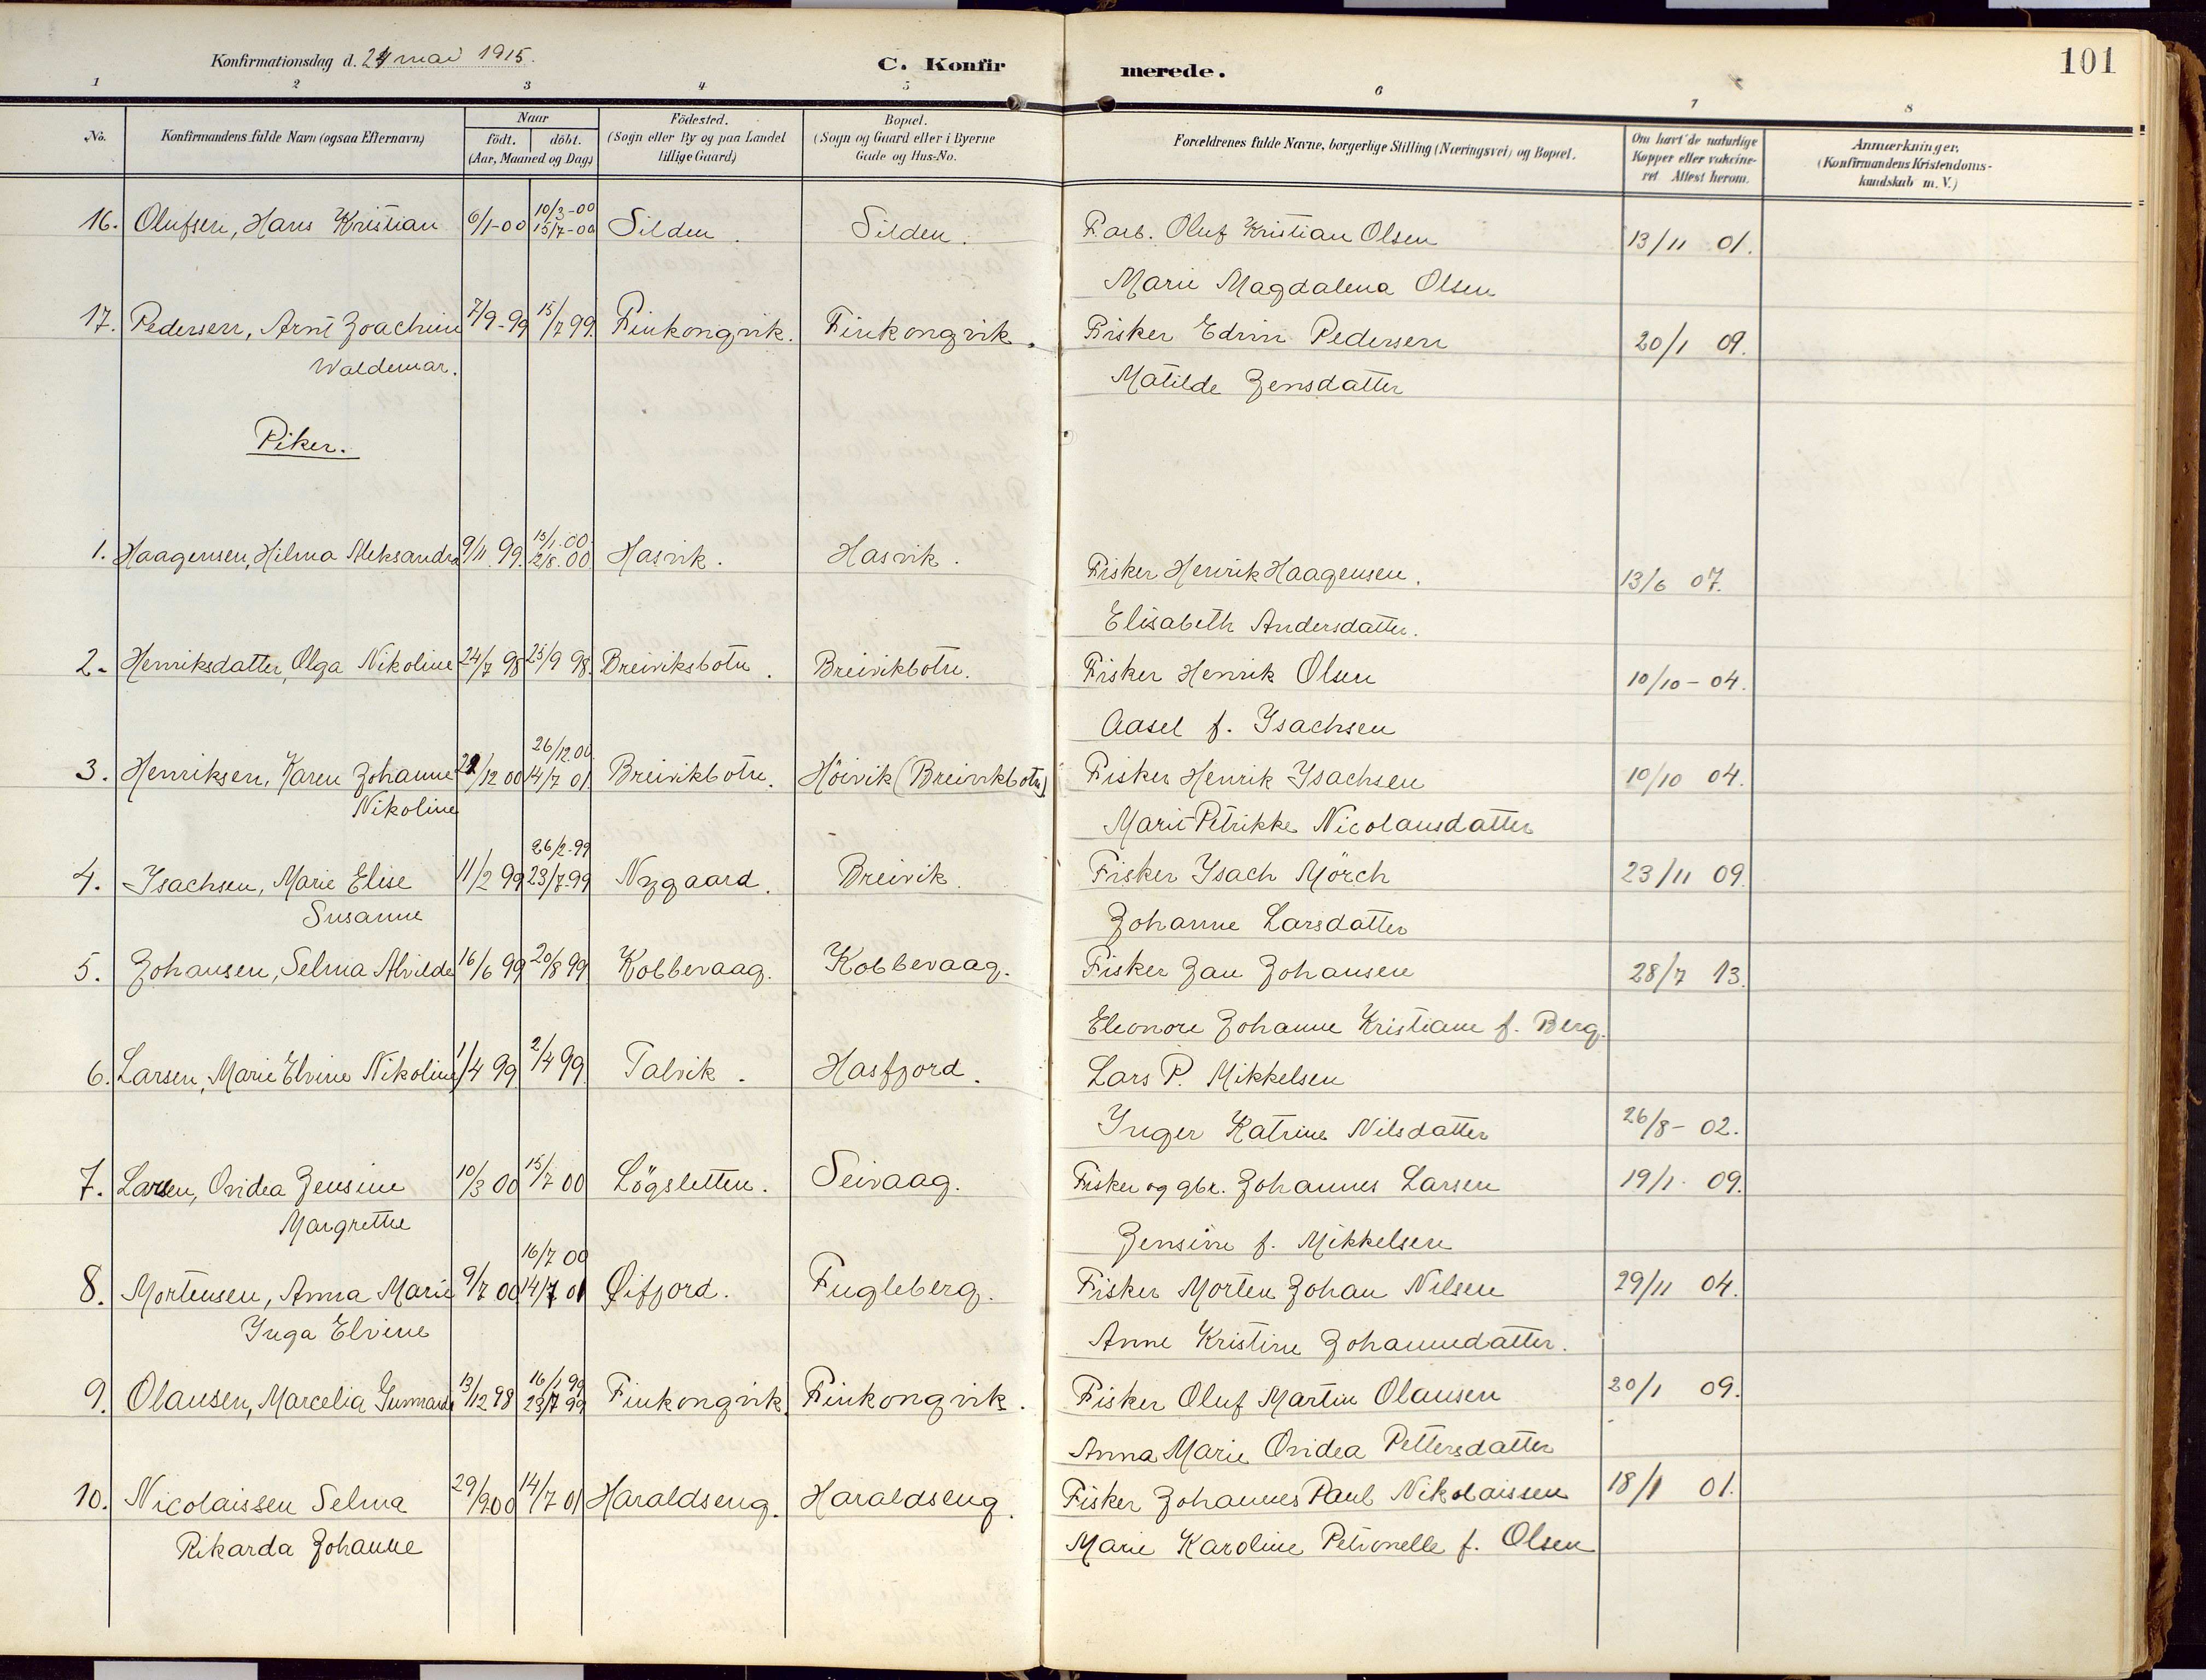 Konfirmationsdag d. 24 mai 1915.
C. Konfirmerede.
101
1 2 3 4 5 6 7 8
No. | Konfirmandens fulde Navn (ogsaa Efternavn) | Naar födt. döbt. (Aar, Maaned og Dag) | Födested. (Sogn eller By og paa Landet tillige Gaard) | Bopæl. (Sogn og Gaard eller i Byerne Gade og Hus-No. | Forældrenes fulde Navne, borgerlige Stilling (Næringsvei) og Bopæl. | Om havt de naturlige Kopper eller vakcineret. Attest herom. | Anmærkninger, (Konfirmandens Kristendomskundskab m. V.)
16. Olufsen, Hans Kristian 6/1-00 10/3-00 15/7-00 Silden. Silden. F.arb. Oluf Kristian Olsen 13/11 01.
Marie Magdalena Olsen
17. Pedersen, Arnt Joachim 7/9-99 15/7 99. Finkongvik. Finkongvik. Fisker Edvin Pedersen 20/1 09.
Waldemar. Matilde Jensdatter
Piker.
1. Haagensen, Hilma Aleksandra 9/11 99. 15/1.00. 2/8.00 Hasvik. Hasvik. Fisker Henrik Haagensen. 13/6 07.
Elisabeth Andersdatter.
2. Henriksdatter, Olga Nikoline 24/7 98 25/9 98. Breiviksbotn. Breivikbotn. Fisker Henrik Olsen 10/10-04.
Aasel f. Isachsen
3. Henriksen, Karen Johanne 22/12 00 26/12.00 14/7 01. Breivikbotn. Höivik (Breivikbotn) Fisker Henrik Isachsen 10/10 04.
Nikoline Marit Petrikke Nicolausdatter
4. Isachsen, Marie Elise 11/2 99 26/2-99 23/7-99 Nygaard. Breivik. Fisker Isach Mörch 23/11 09.
Susanne Johanne Larsdatter
5. Johansen, Selma Alvilde 16/6 99 20/8 99. Kobbevaag. Kobbevaag. Fisker Jan Johansen 28/7 13.
Eleonore Johanne Kristiane f. Berg.
6. Larsen, Marie Elvine Nikoline 1/4 99 2/4 99. Talvik. Hasfjord. Lars P. Mikkelsen
Inger Katrine Nilsdatter 26/8-02.
7. Larsen, Ovidea Jensine 10/3 00 15/7 00 Lögsletten. Seivaag. Fisker og gbr. Johannes Larsen 19/1. 09.
Margrethe Jensine f. Mikkelsen
8. Mortensen, Anna Marie 9/7 00 16/7 00 14/7 01 Øifjord. Fugleberg. Fisker Morten Johan Nilsen 29/11 04.
Inga Elvine Anne Kristine Johannedatter.
9. Olausen, Marcelia 13/12 98 16/1 99 23/7 99 Finkongvik. Finkongvik. Fisker Oluf Martin Olausen 20/1 09.
Anna Marie Ovidea Pettersdatter
10. Nicolaissen Selma 29/9 00 14/7 01 Haraldseng. Haraldseng. Fisker Johannes Paul Nikolaissen 18/1 01.
Rikarda Johanne Marie Karoline Petronelle f. Olsen